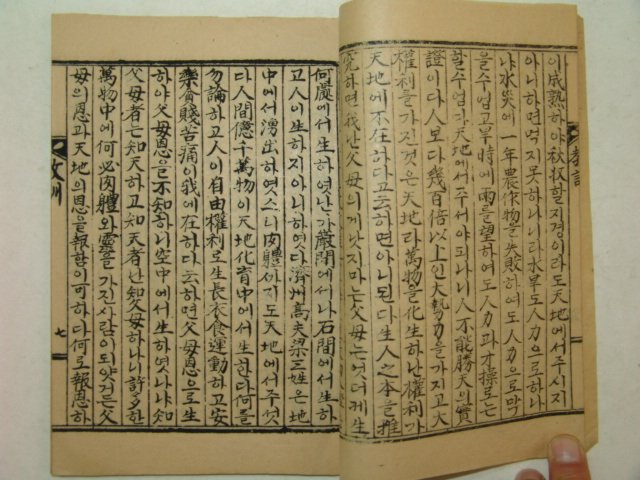 敎訓
이成熟하야秋收할지경이라도天地에서주시지
아니하면먹지못하나니라水旱도人力으로하나
냐水災에一年農作物을失敗하여도人力으로막
을수업고旱時에雨를望하여도人力과才操로는
할수업다天地에서주서야되나니人不能勝天의實
證이다人보다幾百倍以上인大勢力을가지고大
權利를가진것은天地라萬物을化生하난權利가
天地에不在하다고云하면아니된다生人之本을推
究하면我난父母의게낫지마는父母는엇더케生
何處에서生하엿난가巖間에서나石間에서生하
고人이生하지아니하엿다濟州高夫梁三姓은地
中에서湧出하엿스니肉體까지도天地에서주섯
다人間億千萬物이天地化育中에서生한다何를
勿論하고人이自由權利로生長衣食運動하고安
樂貧賤苦痛이我에在하다云하면父母恩으로生
하야父母恩을不知하니空中에서生하엿나냐知
父母者는知天하고知天者난知父母하나니許多한
萬物中에何必肉體와靈을가진사람이되엿거든父
母의恩과天地의恩을報함이可하다何로報恩하
敎訓
七